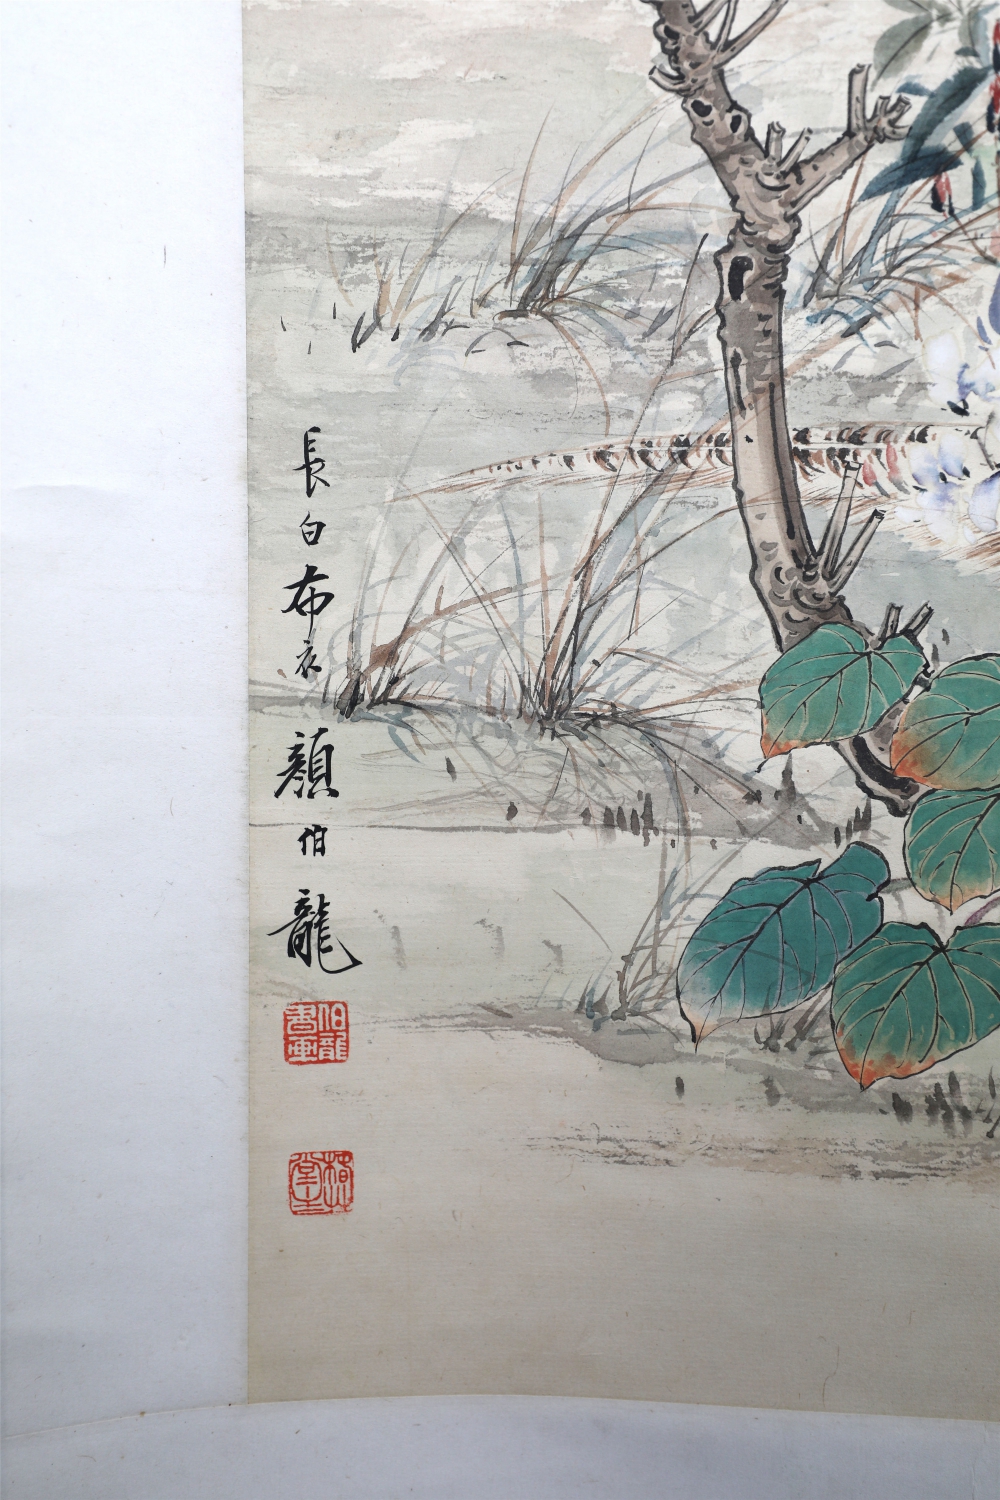 長白布衣顏伯龍
伯龍書畫